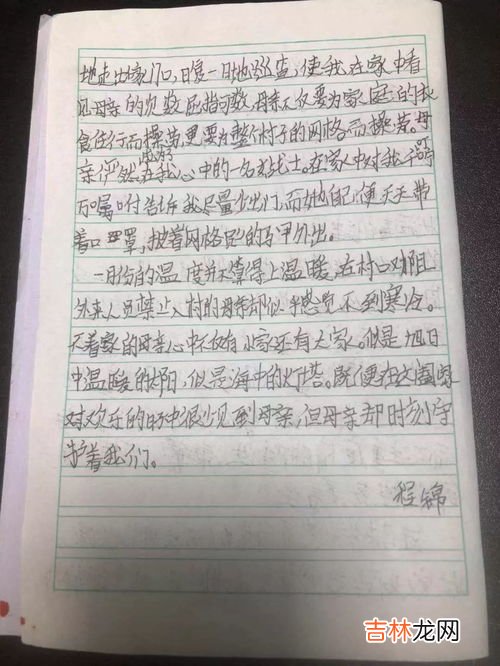 地走出家门口,日复一日地巡查,使我在家中看
见母亲的次数屈指可数,母亲不仅要为家庭的衣
食住行而操劳更要为整个村子的网格而操劳。母
亲俨然成为我心中的一名战士。在家中对我千叮
万嘱咐告诉我尽量少出门,而她自己便天天带
着口罩,披着网格员的马甲外出。
一月份的温度并不算得上温暖,在村口对阻
外来人员禁止入村的母亲却似乎感觉不到寒冷。
不着家的母亲心中不仅有小家还有大家。似是
日中温暖的阳,似是海中的灯塔。既便在这团聚
对欢乐的日子中很少见到母亲,但母亲却时刻守
护着我们。
程锦
吉林龙网